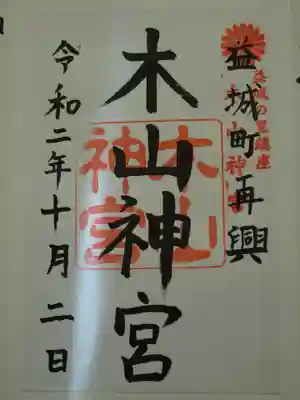 益城町再興
木山神宮
木山
神宮
令和二年十月二日